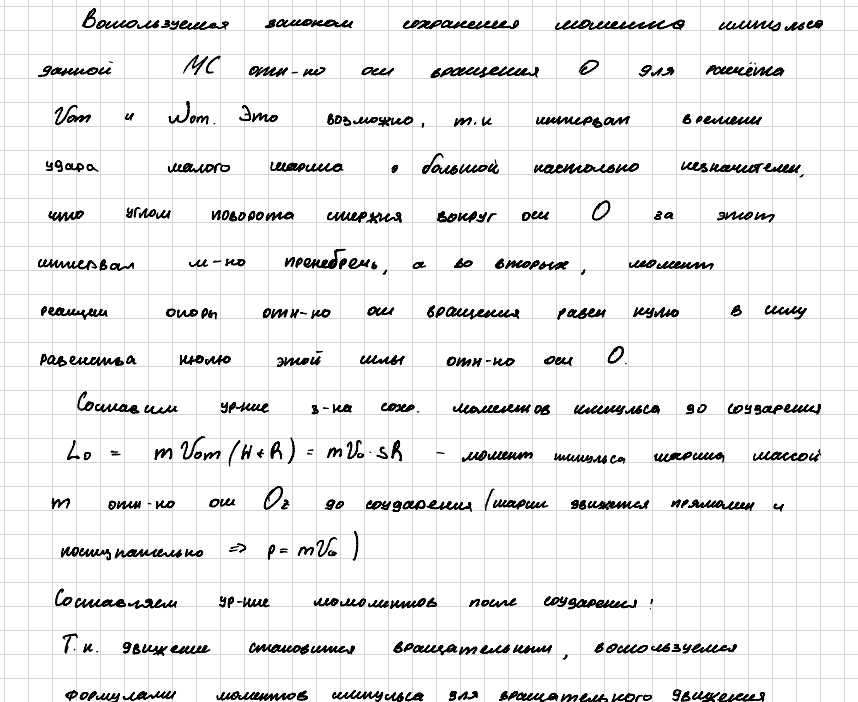 Воспользуемся законом сохранения момента импульса
данной МС отн-но оси вращения O для расчёта
V₀m и W₀m. Это возможно, т.к интервал времени
удара малого шарика о большой настолько незначителен,
что углом поворота стержня вокруг оси O за этот
интервал м-но пренебречь, а во вторых, момент
реакции опоры отн-но оси вращения равен нулю в силу
равенства нюлю этой силы отн-но оси O.
Составим ур-ние з-на сохр. моментов импульса до соударения
L₀ = mV₀m(H+R) = mV₀·5R - момент импульса шарика массой
m отн-но оси Oz до соударения (шарик движется прямолин и
поступательно => p = mV₀)
Составляем ур-ние момоментов после соударения:
Т.к. движение становится вращательным, воспользуемся
формулами моментов импульса для вращательного движения